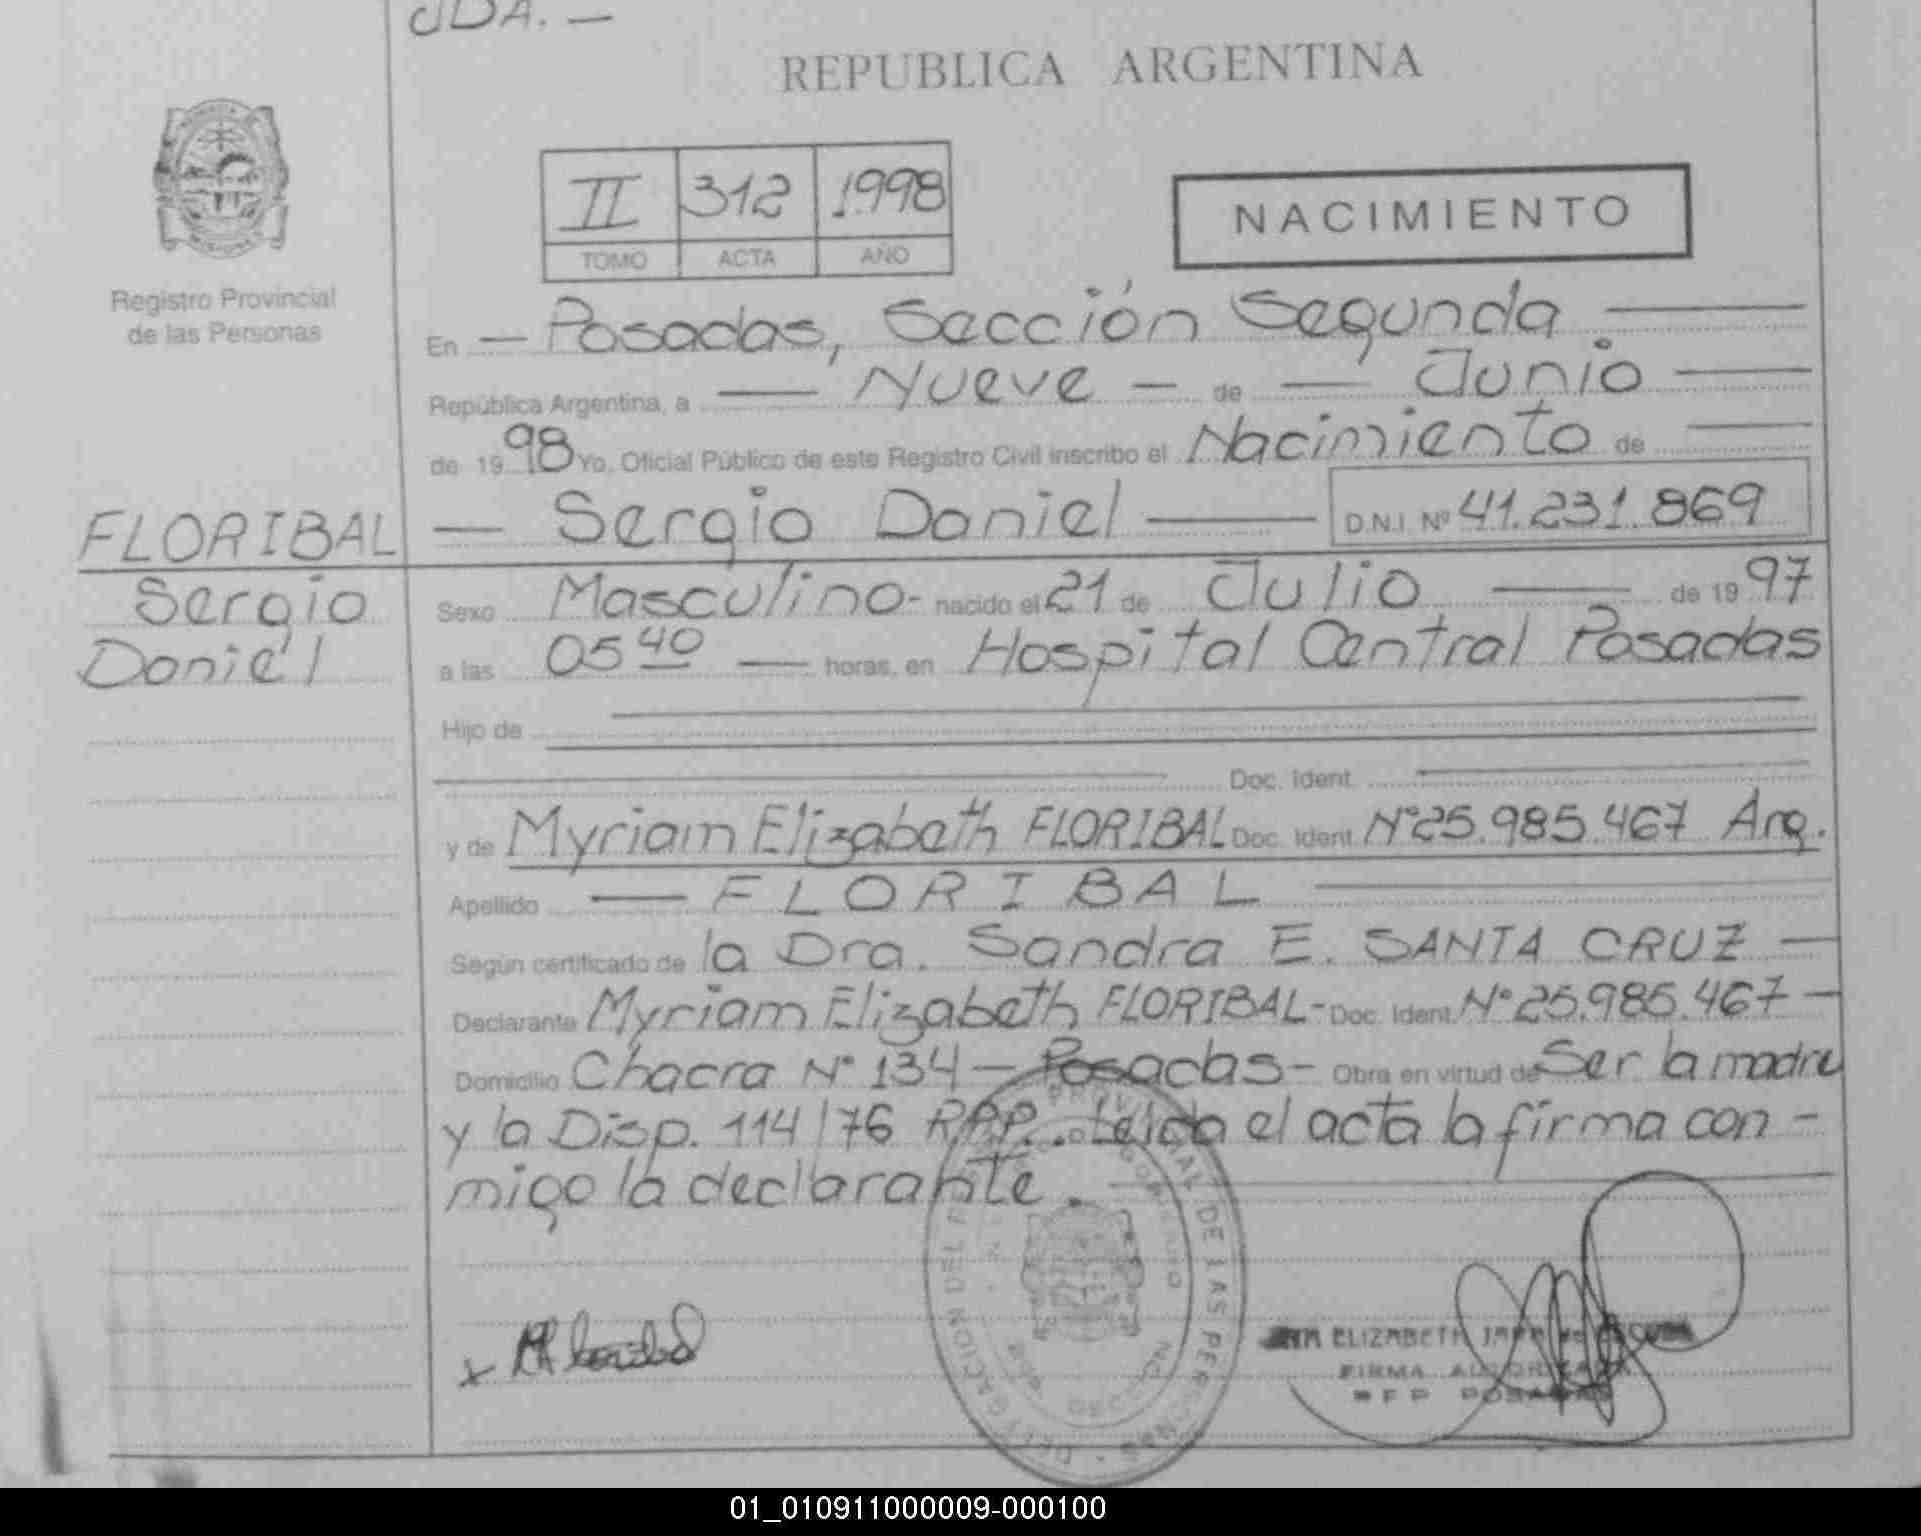 JDA. —
REPUBLICA ARGENTINA
II 312 1998
TOMO ACTA AÑO
NACIMIENTO
Registro Provincial
de las Personas
En — Posadas, Sección Segunda —
República Argentina, a — Nueve — de — Junio —
de 1998 Yo, Oficial Público de este Registro Civil inscribo el Nacimiento de —
— Sergio Daniel — D.N.I. Nº 41.231.869
FLORIBAL
Sergio
Daniel
Sexo Masculino - nacido el 21 de Julio — de 1997
a las 05 40 — horas, en Hospital Central Posadas
Hijo de
Doc. Ident.
y de Myriam Elizabeth FLORIBAL Doc. Ident. Nº 25.985.467 Arg.
Apellido — FLORIBAL —
Según certificado de la Dra. Sandra E. SANTA CRUZ —
Declarante Myriam Elizabeth FLORIBAL - Doc. Ident. Nº 25.985.467 —
Domicilio Chacra Nº 134 — Posadas - Obra en virtud de Ser la madre
y la Disp. 114/76 RPP. Leída el acta la firma con -
migo la declarante.
DELEGACION DEL REGISTRO PROVINCIAL DE LAS PERSONAS
ELIZABETH
FIRMA AUTORIZADA
POSADAS
01_010911000009-000100